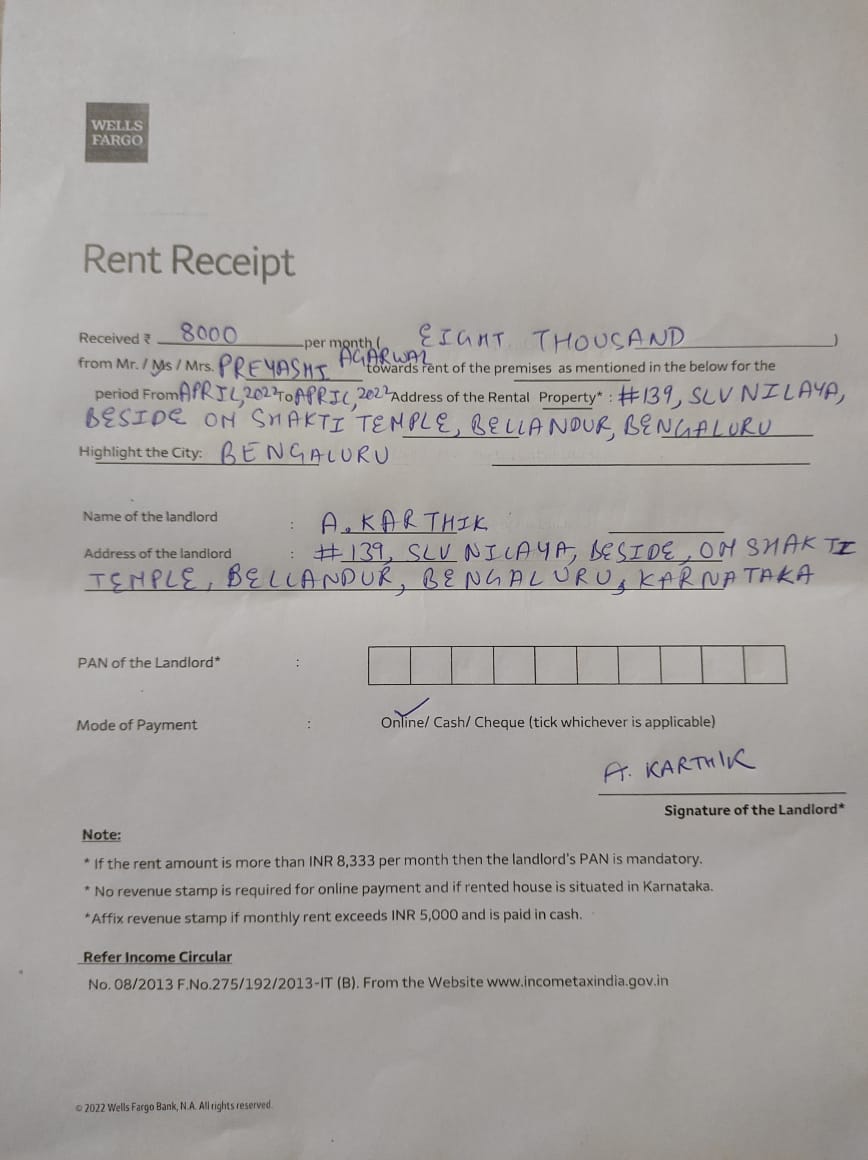 WELLS
FARGO
Rent Receipt
Received ₹ 8000 per month ( EIGHT THOUSAND )
from Mr. / Ms / Mrs. PREYASHI AGARWAL towards rent of the premises as mentioned in the below for the
period From APRIL, 2022 To APRIL, 2022 Address of the Rental Property* : #139, SLV NILAYA,
BESIDE OM SHAKTI TEMPLE, BELLANDUR, BENGALURU
Highlight the City: BENGALURU
Name of the landlord : A. KARTHIK
Address of the landlord : #139, SLV NILAYA, BESIDE, OM SHAKTI
TEMPLE, BELLANDUR, BENGALURU, KARNATAKA
PAN of the Landlord* :
Mode of Payment : Online/ Cash/ Cheque (tick whichever is applicable)
A. KARTHIK
Signature of the Landlord*
Note:
* If the rent amount is more than INR 8,333 per month then the landlord's PAN is mandatory.
* No revenue stamp is required for online payment and if rented house is situated in Karnataka.
*Affix revenue stamp if monthly rent exceeds INR 5,000 and is paid in cash.
Refer Income Circular
No. 08/2013 F.No.275/192/2013-IT (B). From the Website www.incometaxindia.gov.in
© 2022 Wells Fargo Bank, N.A. All rights reserved.